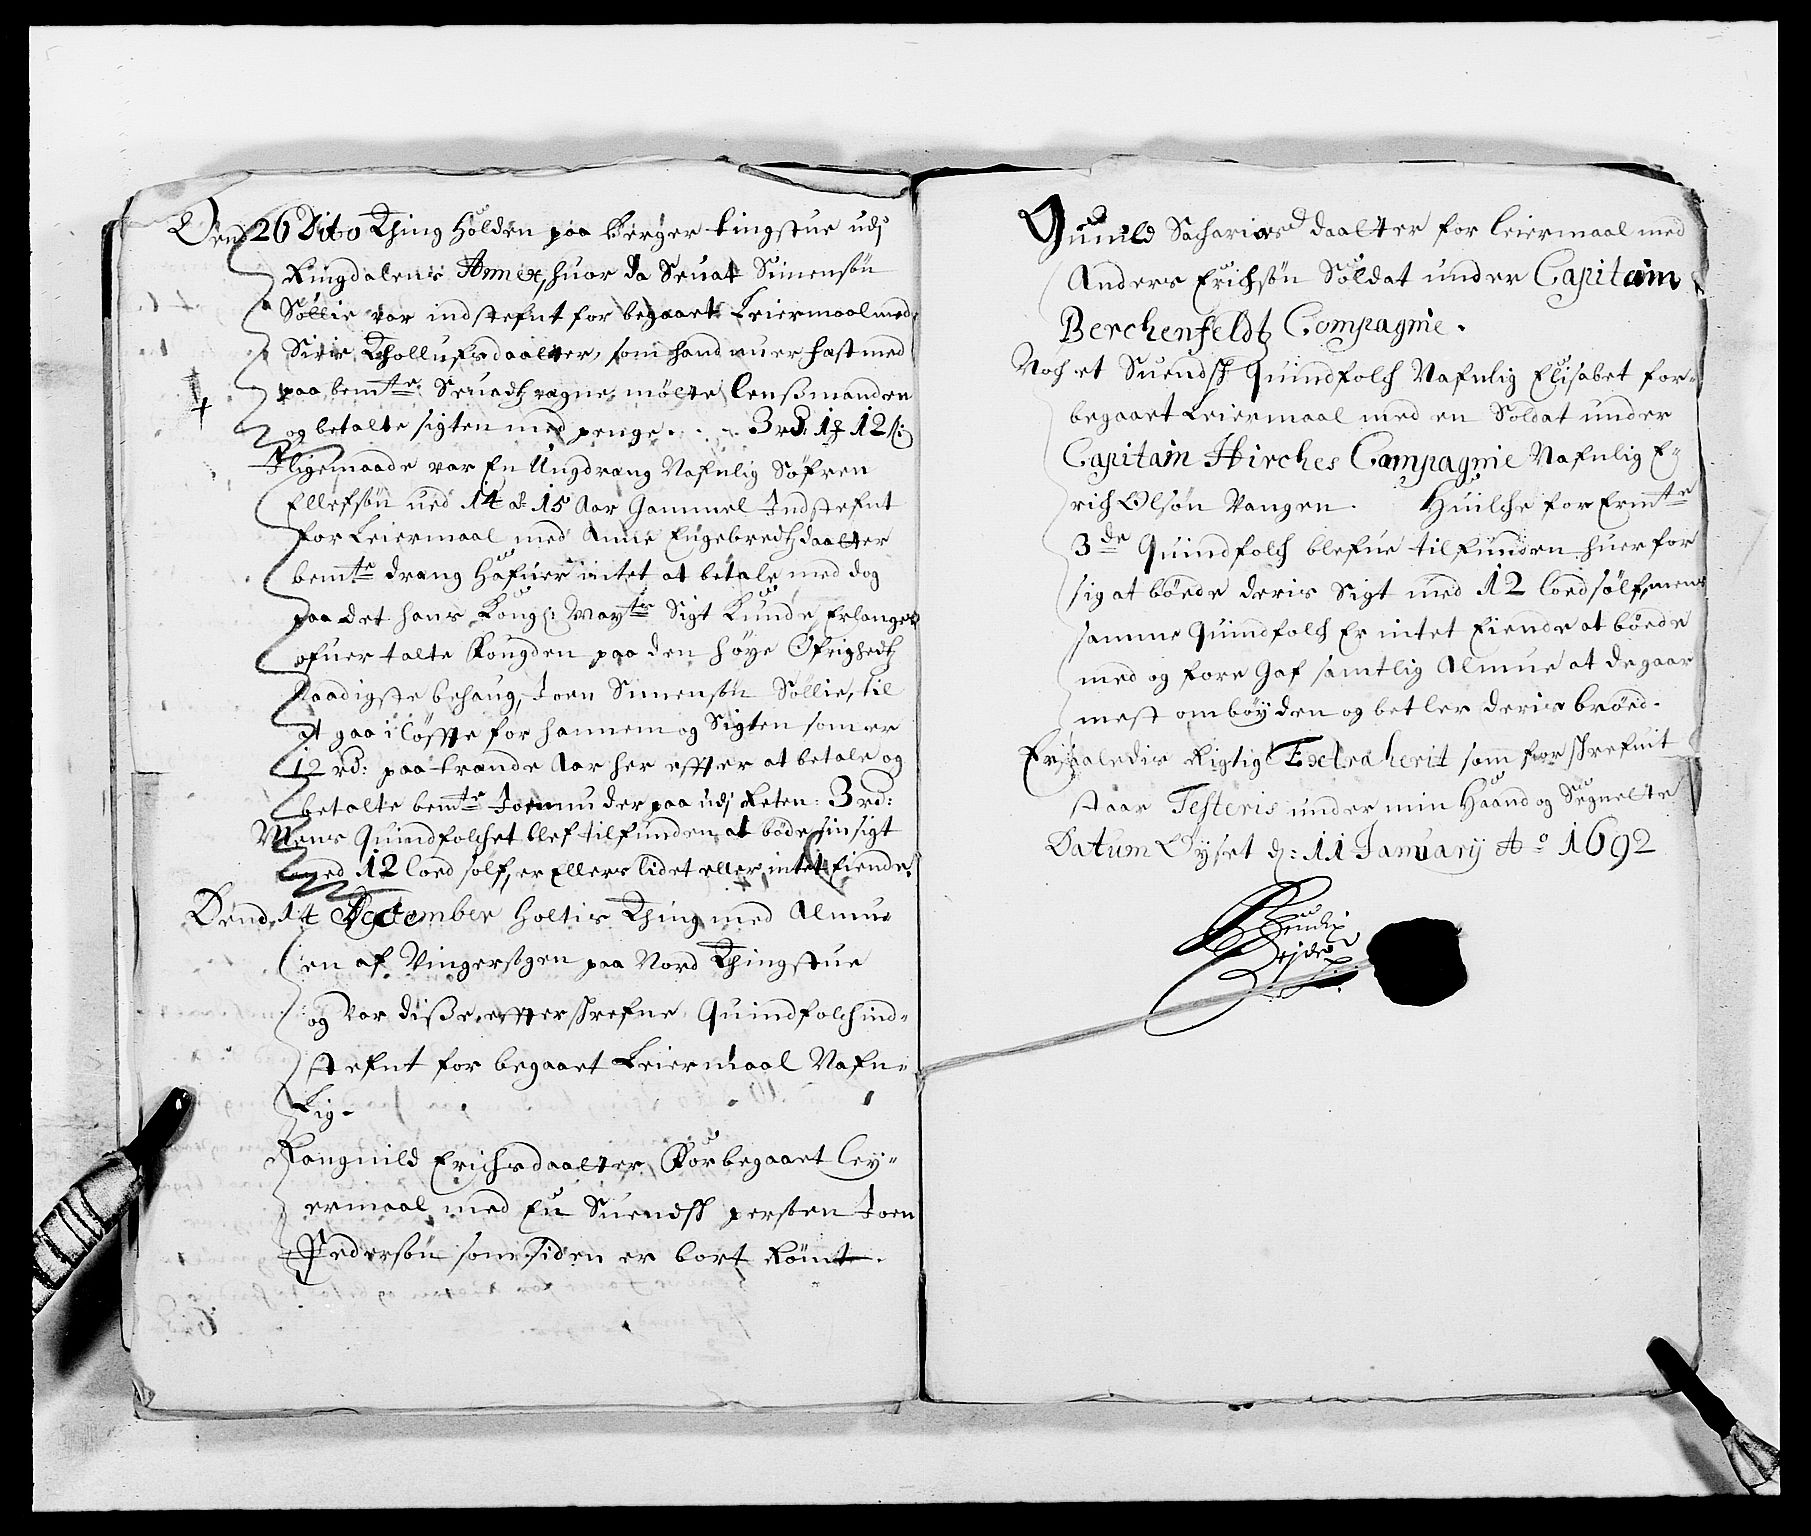 Dend 26 Dito Thing Holden paa Berger tingstue udj
Ringdalens Annex, huor da Seuat Simensøn
Søllie var indstefnt for begaaet Leiermaal med
Siri Thollufsdaatter, som hand nuer fast med
paa bemte Seuadtz vegne, møtte Lensmanden
og betalte sigten med penge. . . 3 rd: 1 12 s:
Iligemaade var En Ungdreng Nafnlig Søfren
Ellefsøn ued 14 a 15 Aar Gammel Indstefnt
for Leiermaal med Anne Engebredtzdaatter
bemte dreng Hafuer intet at betale med dog
paa det hans Kongl: Mayts Sigt Kunde Erlanges
ofuertalte Fougden paa den høye Øfrighedtz
Naadigste behaug, Joen Simensøn Søllie, til
at gaa i løffte for hannem og Sigten som er
12 rd: paa trende Aar her effter at betale og
betalte bemte Joen nu der paa udj Reten: 3 rd:
Mens Quindfolchet blef tilfunden at bøde sin sigt
med 12 lood sølf, er Ellers lidet eller intet Eiende.
Dend 14 December Holtis Thing med Almu-
en af Vingersogen paa Nord Thingstue
og Var disse effterskrefne Quindfolch ind-
stefnt for begaaet Leiermaal Nafn-
Lig-
Rangnild Erichsdaatter For begaaet Ley-
ermaal med En Suendsk person Joen
Pedersøn som siden er bort Rømt.
Gunild Sachariasdaatter for Leiermaal med
Anders Erichsøn Soldat under Capitain
Berchenfeldtz Compagnie.
Noch et Suendsk Quindfolch Nafnlig Elisabet for
begaaet Leiermaal med en Soldat under
Capitain Hirches Compagnie Nafnlig E-
rich Olsøn Vangen. Huilche for Ermte
3de Quindfolch blefue tilfunden huer for
sig at bøede deris Sigt med 12 lood sølf, mens
samme Quindfolch Er intet Eiende at bøede
med og fore Gaf samtlig Almue at de gaar
mest om bøyden og betler deris brøed.
Er saaledis Rigtig Extraherit som forskrefuit
staar Testeris under min Haand og Segnette
Datum Øyset d: 11 January Ao 1692